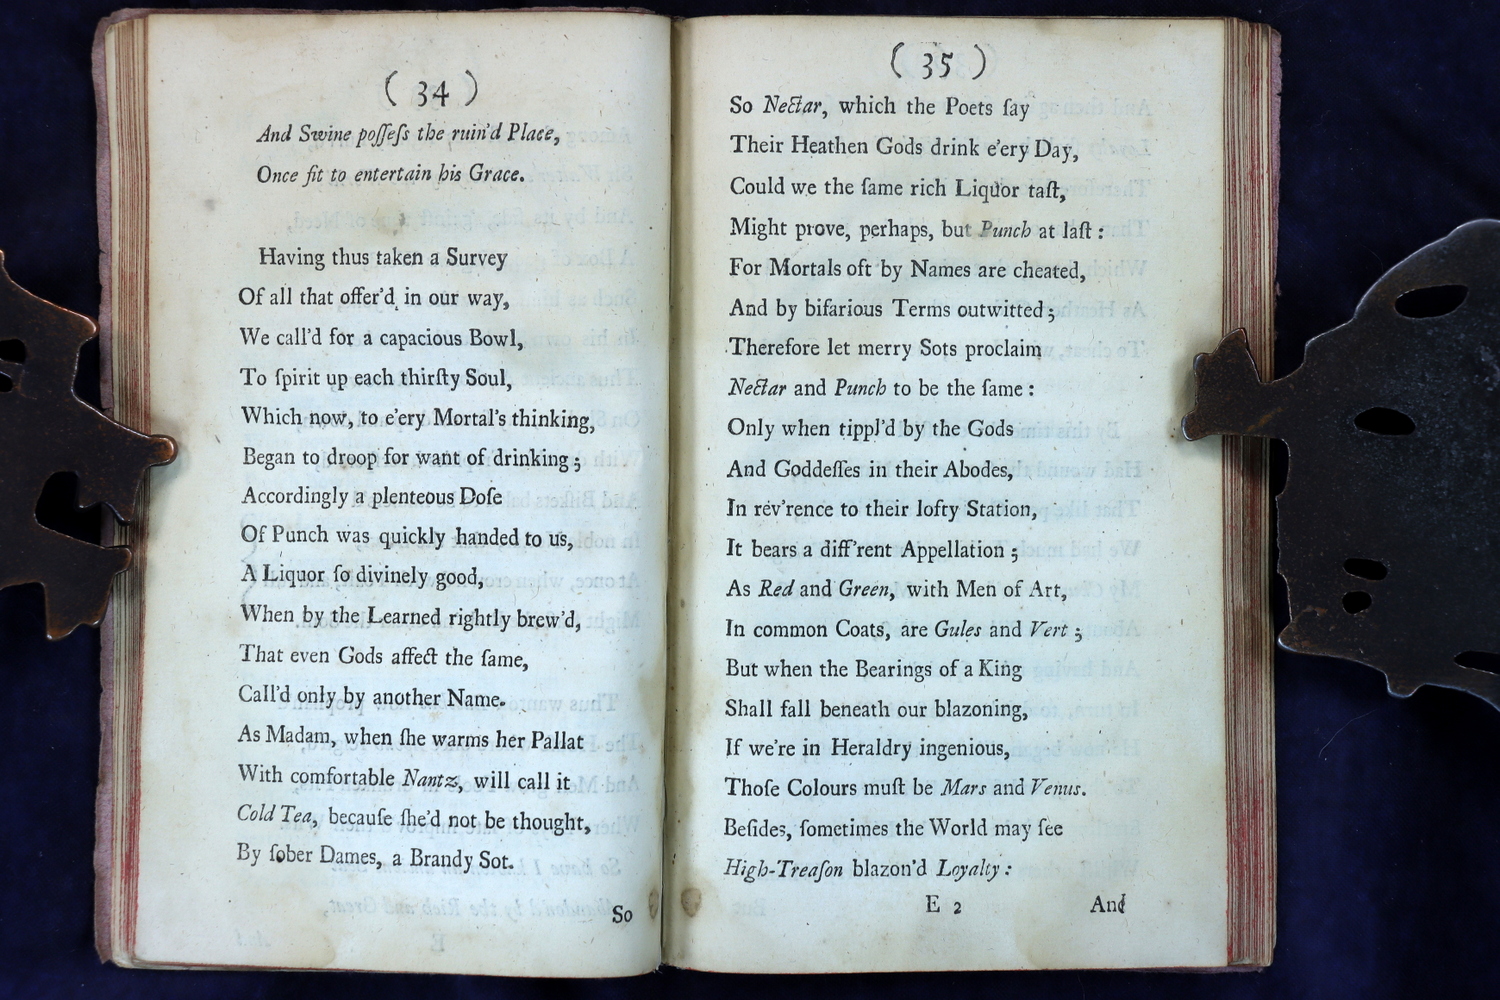 ( 34 )
And Swine poſſeſs the ruin'd Place,
Once fit to entertain his Grace.
Having thus taken a Survey
Of all that offer'd in our way,
We call'd for a capacious Bowl,
To ſpirit up each thirſty Soul,
Which now, to e'ery Mortal's thinking,
Began to droop for want of drinking;
Accordingly a plenteous Doſe
Of Punch was quickly handed to us,
A Liquor ſo divinely good,
When by the Learned rightly brew'd,
That even Gods affect the ſame,
Call'd only by another Name.
As Madam, when ſhe warms her Pallat
With comfortable Nantz, will call it
Cold Tea, becauſe ſhe'd not be thought,
By ſober Dames, a Brandy Sot.
So
( 35 )
So Nectar, which the Poets ſay
Their Heathen Gods drink e'ery Day,
Could we the ſame rich Liquor taſt,
Might prove, perhaps, but Punch at laſt :
For Mortals oft by Names are cheated,
And by bifarious Terms outwitted;
Therefore let merry Sots proclaim
Nectar and Punch to be the ſame :
Only when tippl'd by the Gods
And Goddeſſes in their Abodes,
In rev'rence to their lofty Station,
It bears a diff'rent Appellation ;
As Red and Green, with Men of Art,
In common Coats, are Gules and Vert ;
But when the Bearings of a King
Shall fall beneath our blazoning,
If we're in Heraldry ingenious,
Thoſe Colours muſt be Mars and Venus.
Beſides, ſometimes the World may ſee
High-Treaſon blazon'd Loyalty :
E 2
And